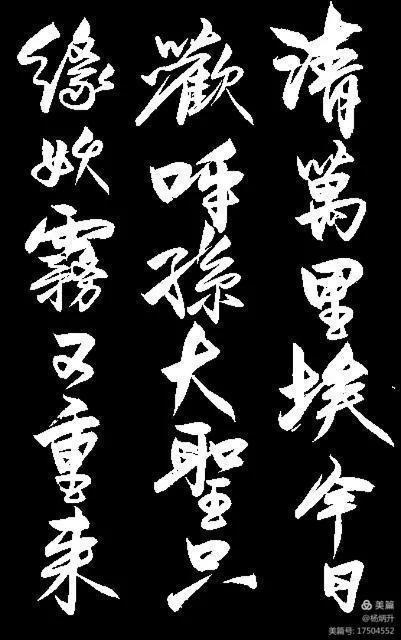 清萬里埃今日
歡呼孫大聖只
緣妖霧又重来
美篇
@杨炳升
美篇号: 17504552